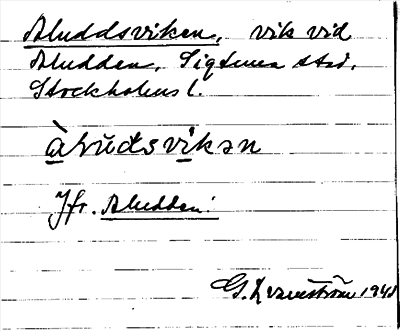 Aluddsviken, vik vid
Aludden, Sigtuna stad,
Stockholms l.
àlŭdsvikən
Jfr. Aludden.
G. 1941